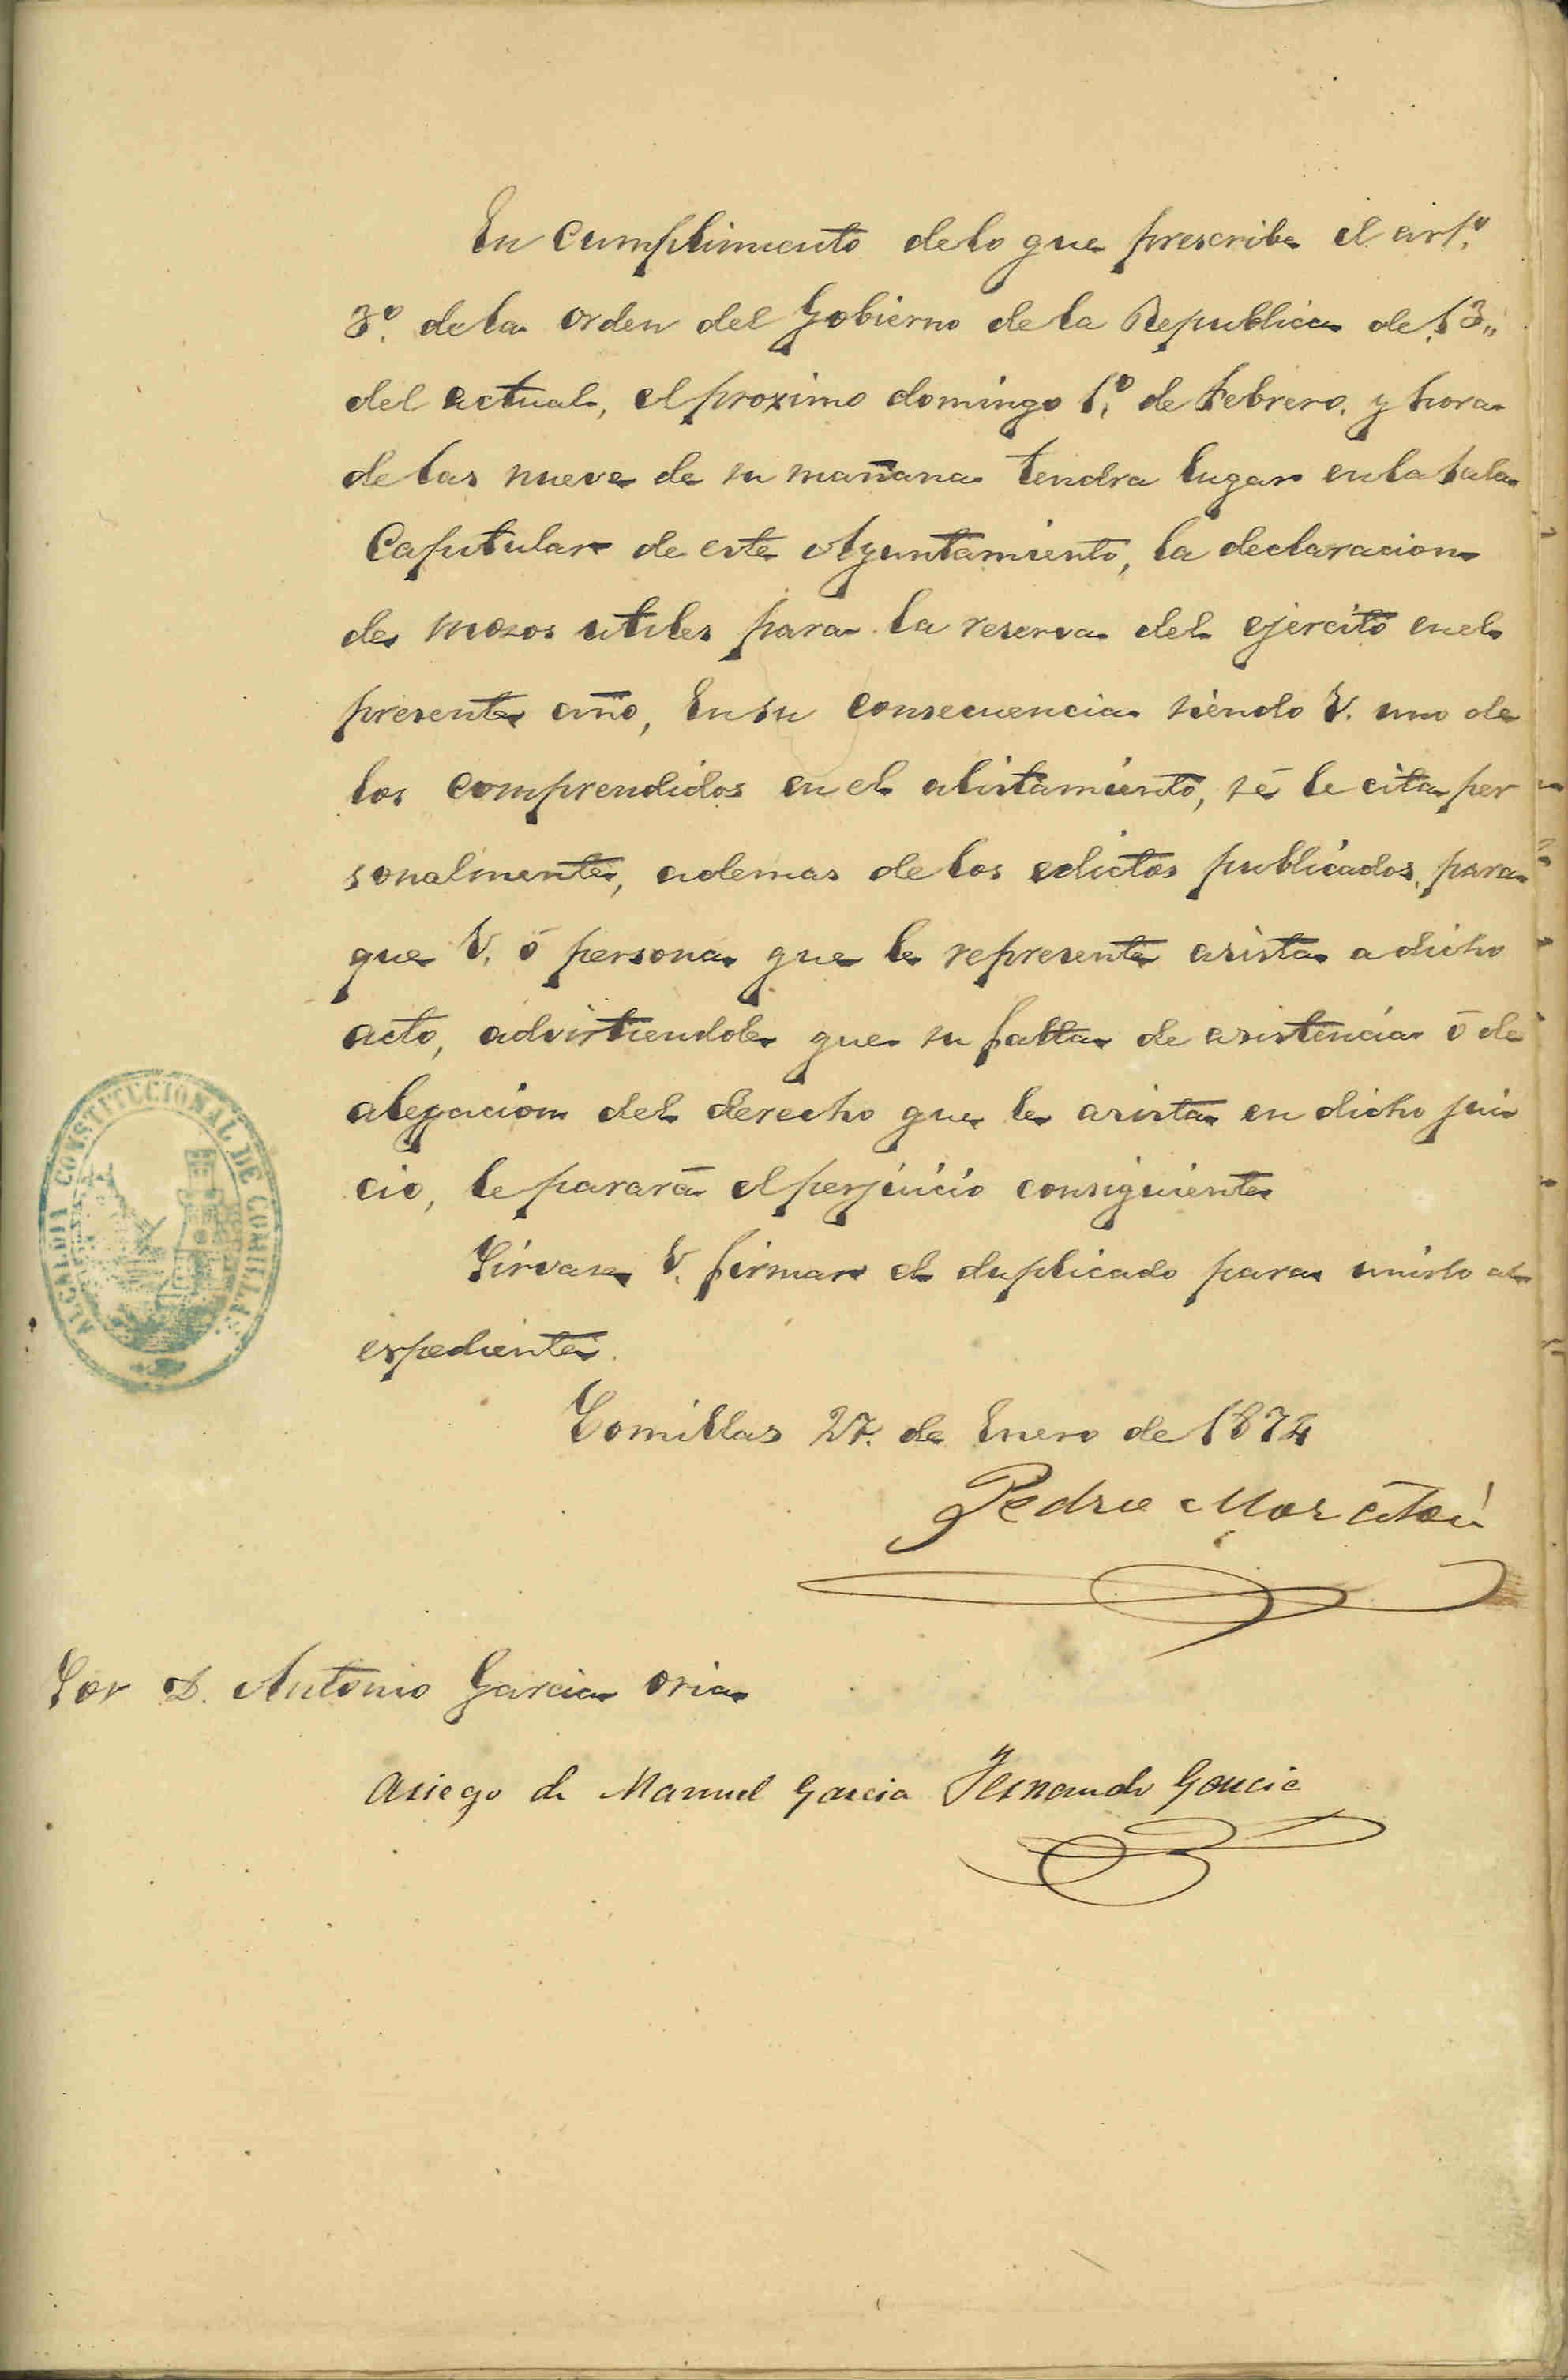 En cumplimiento de lo que prescribe el artº
3º. de la orden del Gobierno de la Republica de 13,,
del actual, el proximo domingo 1º. de Febrero, y hora
de las nueve de su mañana tendra lugar en la Sala
Capitular de este Ayuntamiento, la declaracion
de mozos utiles para la reserva del ejercito en el
presente año, En su consecuencia siendo V. uno de
los comprendidos en el alistamiento, sé le cita per
sonalmente, ademas de los edictos publicados, para
que V. ó persona que le represente asista a dicho
acto, advirtiendole que su falta de asistencia ó de
alegacion del derecho que le asista en dicho jui
cio, le parará el perjuicio consiguiente
ALCALDIA CONSTITUCIONAL DE COMILLAS
Sirvase V. firmar el duplicado para unirlo al
espediente.
Comillas 27. de Enero de 1874
Pedro
Sor D. Antonio Garcia Oria
A riego de Manuel Garcia Fernando Garcia